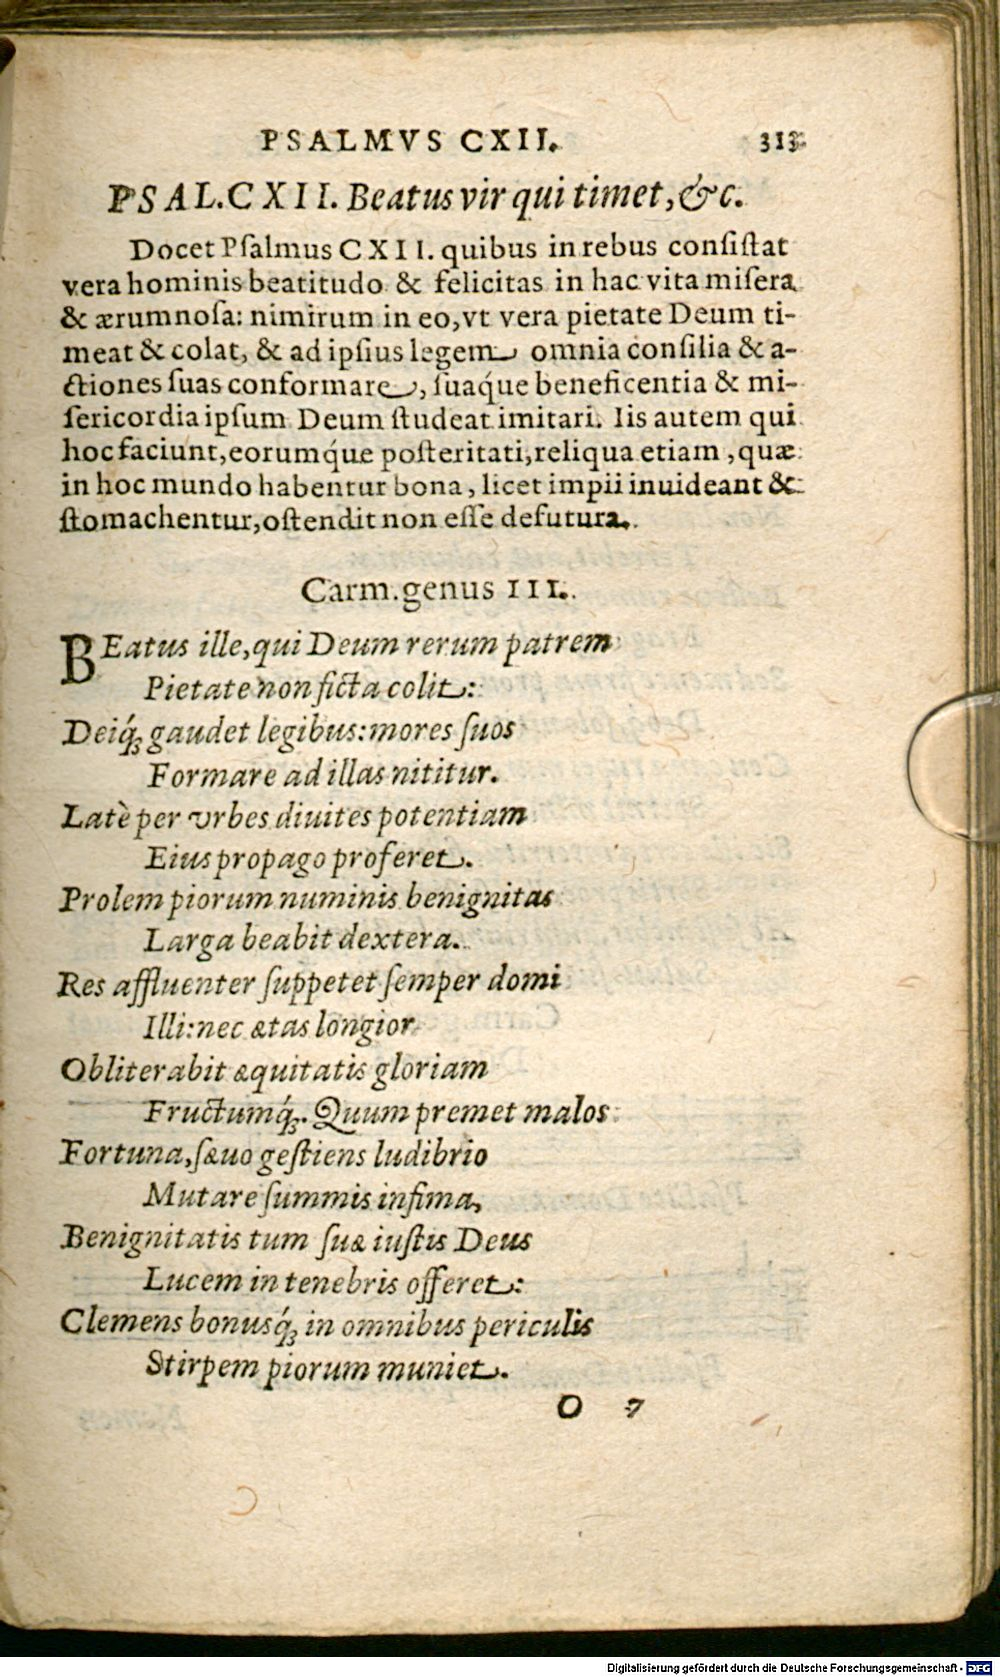 PSALMVS CXII. 313
PSAL. CXII. Beatus vir qui timet, &c.
Docet Pſalmus CXII. quibus in rebus conſiſtat
vera hominis beatitudo & felicitas in hac vita miſera
& ærumnoſa: nimirum in eo, vt vera pietate Deum ti-
meat & colat, & ad ipſius legem omnia conſilia & a-
ctiones ſuas conformare, ſuaq́ue beneficentia & mi-
ſericordia ipſum Deum ſtudeat imitari. Iis autem qui
hoc faciunt, eorumq́ue poſteritati, reliqua etiam, quæ
in hoc mundo habentur bona, licet impii inuideant &
ſtomachentur, oſtendit non eſſe defutura.
Carm. genus III.
BEatus ille, qui Deum rerum patrem
Pietate non ficta colit:
Deiq́; gaudet legibus: mores ſuos
Formare ad illas nititur.
Latè per vrbes diuites potentiam
Eius propago proferet.
Prolem piorum numinis benignitas
Larga beabit dextera.
Res affluenter ſuppetet ſemper domi
Illi: nec ætas longior
Obliterabit æquitatis gloriam
Fructumq́;. Quum premet malos
Fortuna, ſæuo geſtiens ludibrio
Mutare ſummis infima,
Benignitatis tum ſuæ iuſtis Deus
Lucem in tenebris offeret:
Clemens bonusq́; in omnibus periculis
Stirpem piorum muniet.
O 7
Digitalisierung gefördert durch die Deutsche Forschungsgemeinschaft - DFG